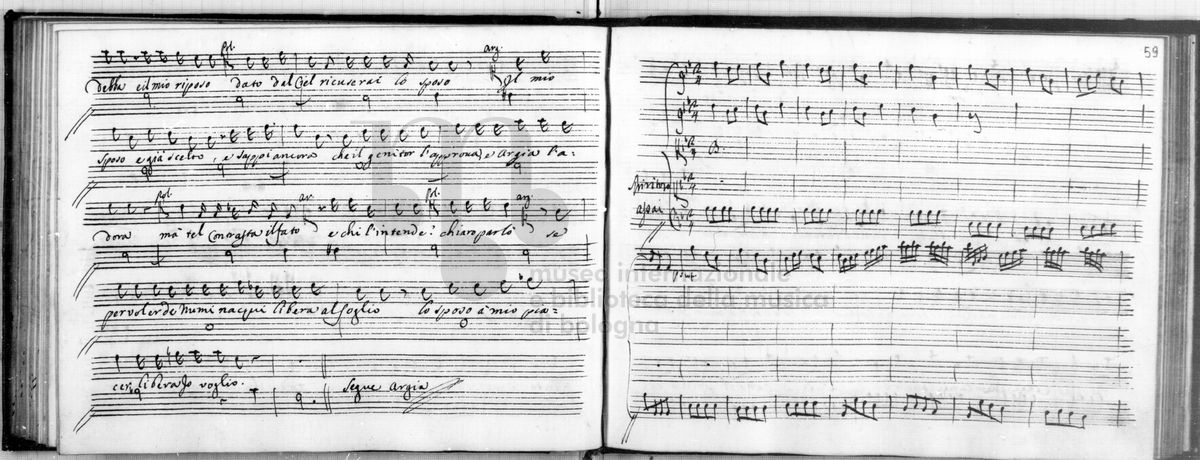 Pol. arg.
della è il mio riposo dato dal Ciel ricuserai lo sposo Il mio
sposo è già scelto, e sappi ancora che il genitor l'approva, e Argia l'a-
Pol. ar. Pol. arg.
dora ma tel contrasta il fato e chi l'intende? chiaro parlò se
per voler de Numi nacqui libera al soglio lo sposo à mio pia-
cer, libera voglio.
Segue Argia
59
assai
museo internazionale
e biblioteca della musica
di bologna